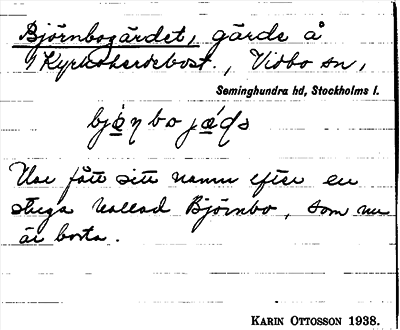 Björnbogärdet, gärde å
Kyrkoherdebost., Vidbo sn,
Seminghundra hd, Stockholms l.
Har fått sitt namn efter en
stuga kallad Björnbo, som nu
är borta.
KARIN OTTOSSON 1938.